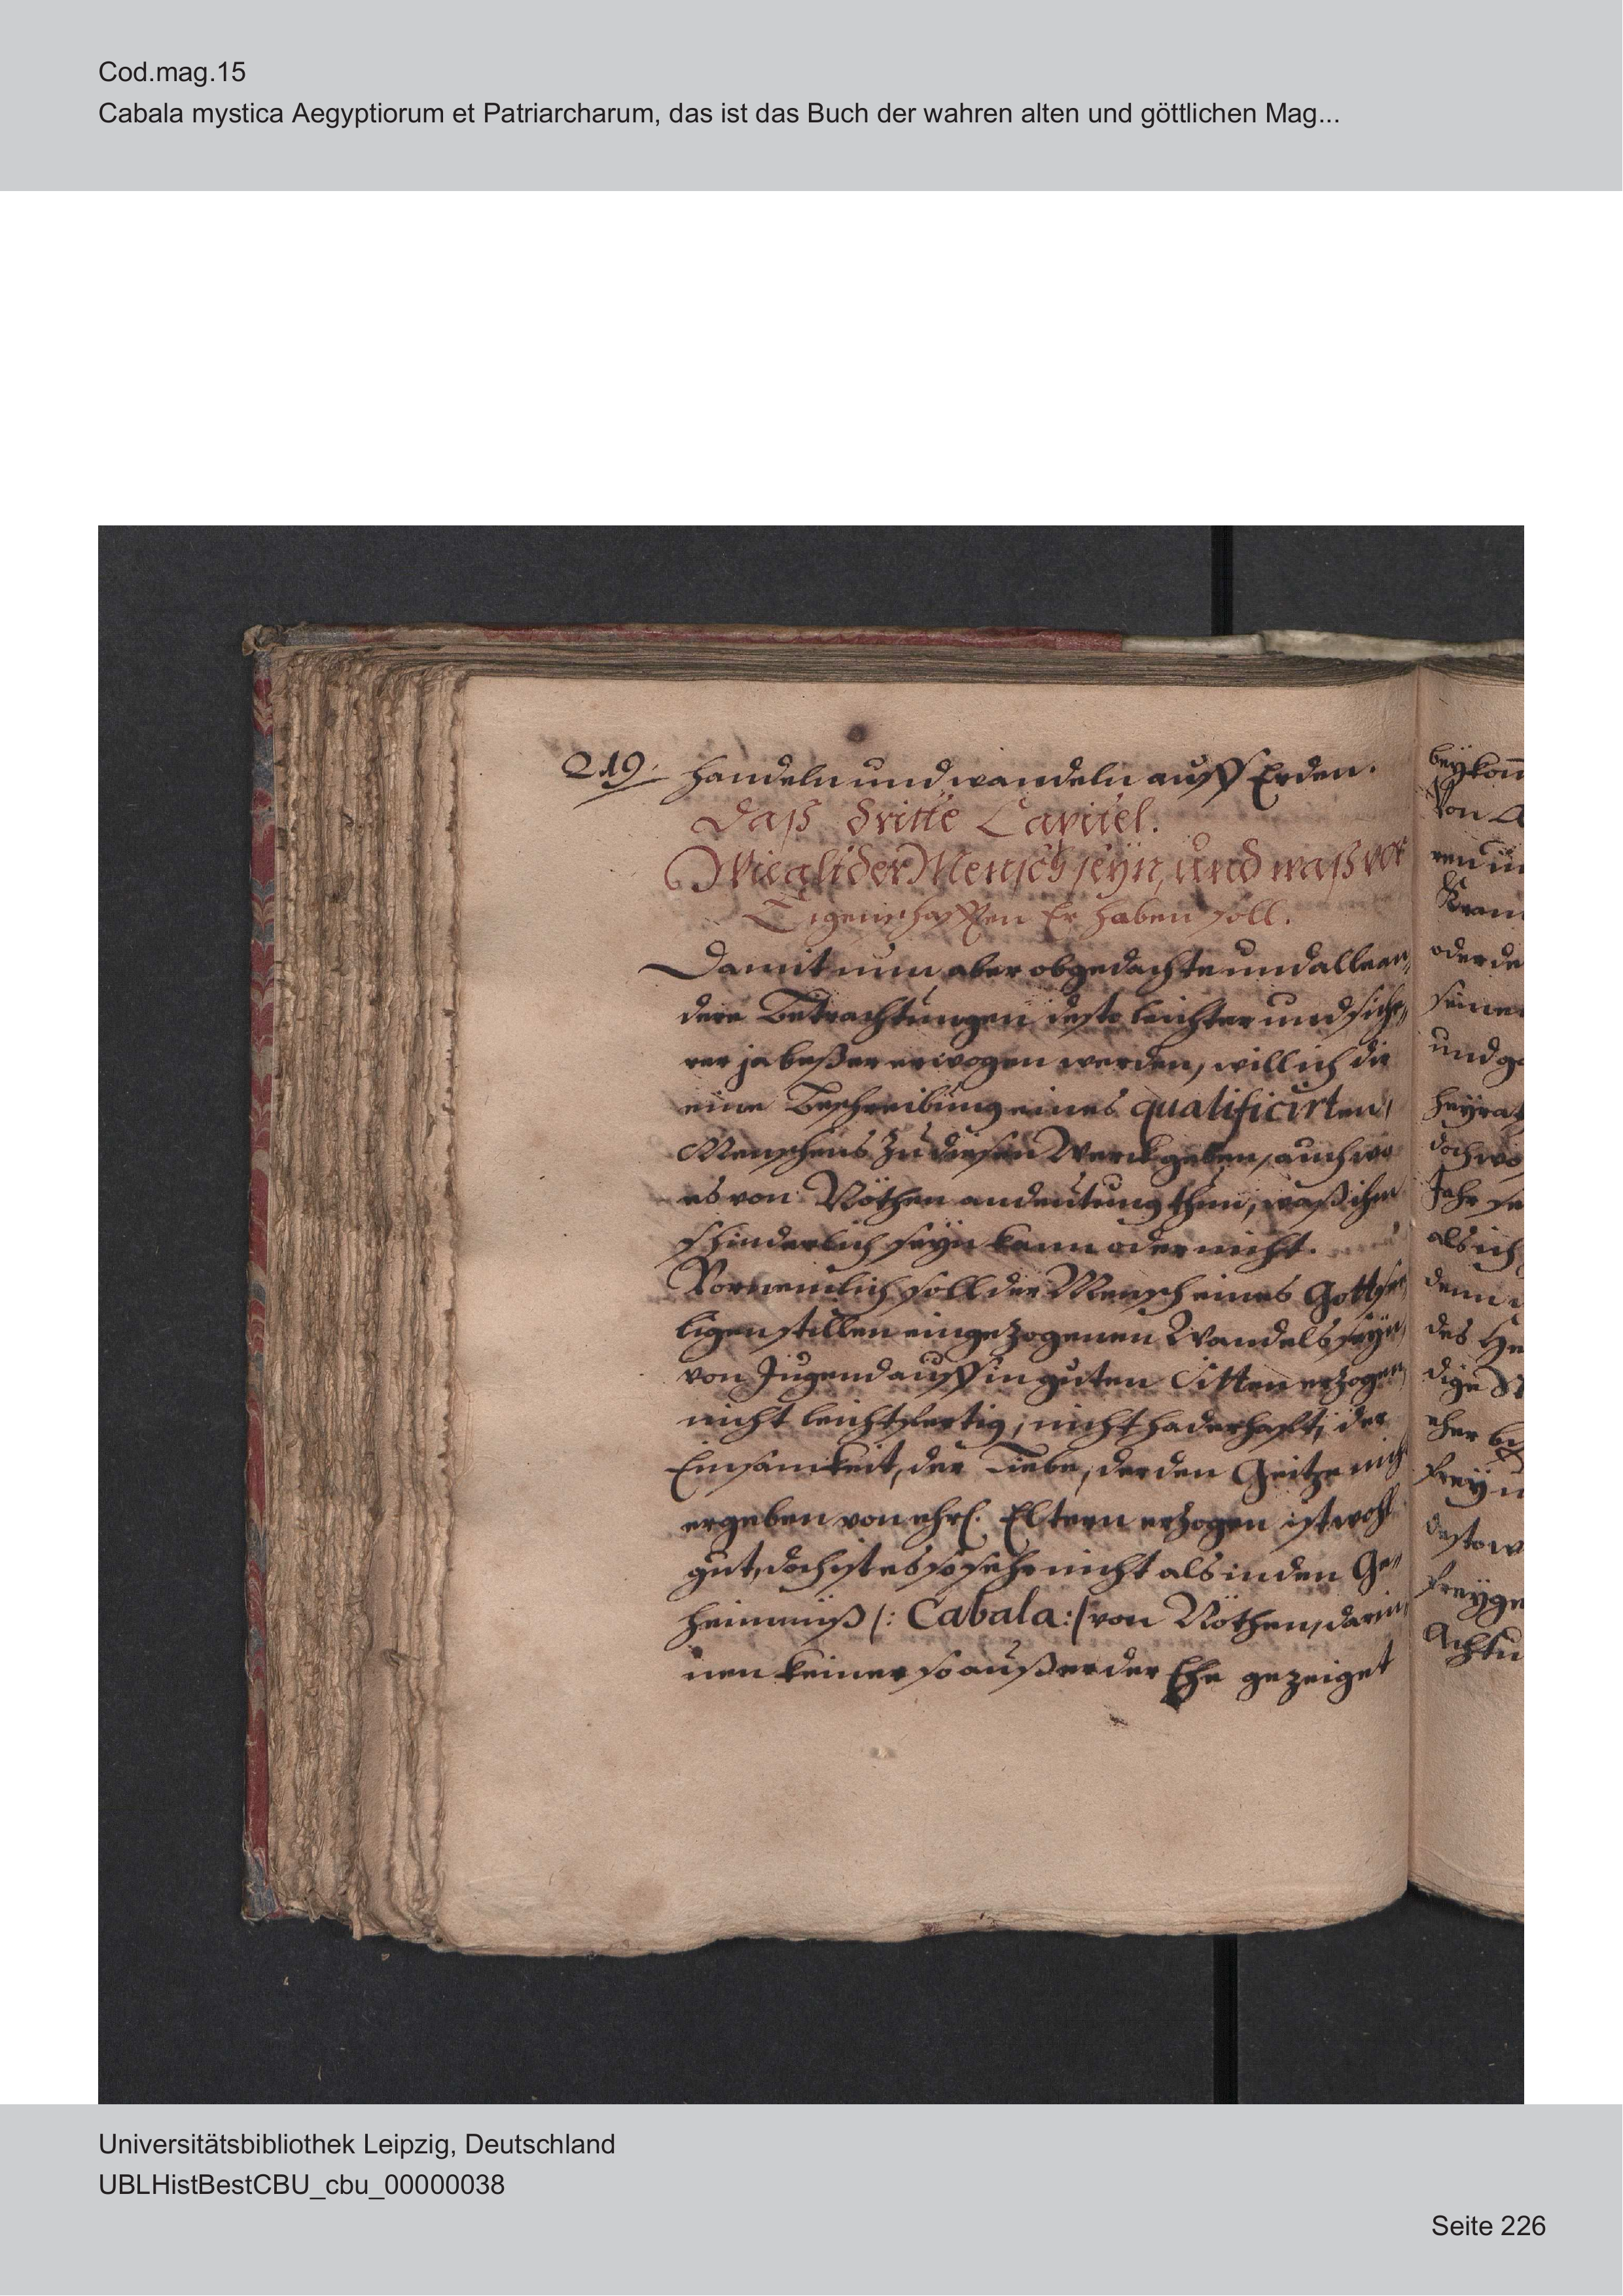 Cod.mag.15
Cabala mystica Aegyptiorum et Patriarcharum, das ist das Buch der wahren alten und göttlichen Mag...
219. handeln und wandeln auff Erden.
Daß dritte Capitel.
Wie alt der Mensch seÿn, und waß vor
Eigenschafften Er haben soll.
Damit nun aber obgedachte und alle an,,
dere Betrachtungen desto leichter und siche,,
rer ja beßer erwogen werden, will ich dir
eine Beschreibung eines qualificirten
Menschens zu diesen Werck geben, auch wo
es von Nöthen andeutung thun, waß ihm
hinderlich seÿn kann oder nicht.
Vornemlich soll der Mensch eines Gottsee,,
ligen stillen eingezogenen Wandels seÿn,
von Jugend auff in guten Sitten erzogen,
nicht leichtfertig, nicht haderhafft, der
Einsamkeit, der Liebe, der den Geitze nich
ergeben von ehrl. Eltern erzogen ist wohl
gut, doch ist es so sehr nicht als in den Ge,,
heimnüß /: Cabala :/ von Nöthen, darin,,
nen keiner so außer der Ehe gezeiget
beÿkom̄
Von
ren
oder de
seiner
und ge
heÿrat
doch wo
Jahr se
als ich
denn
des He
dige
eher
freÿ
desto w
freÿge
Achtu
Universitätsbibliothek Leipzig, Deutschland
UBLHistBestCBU_cbu_00000038
Seite 226